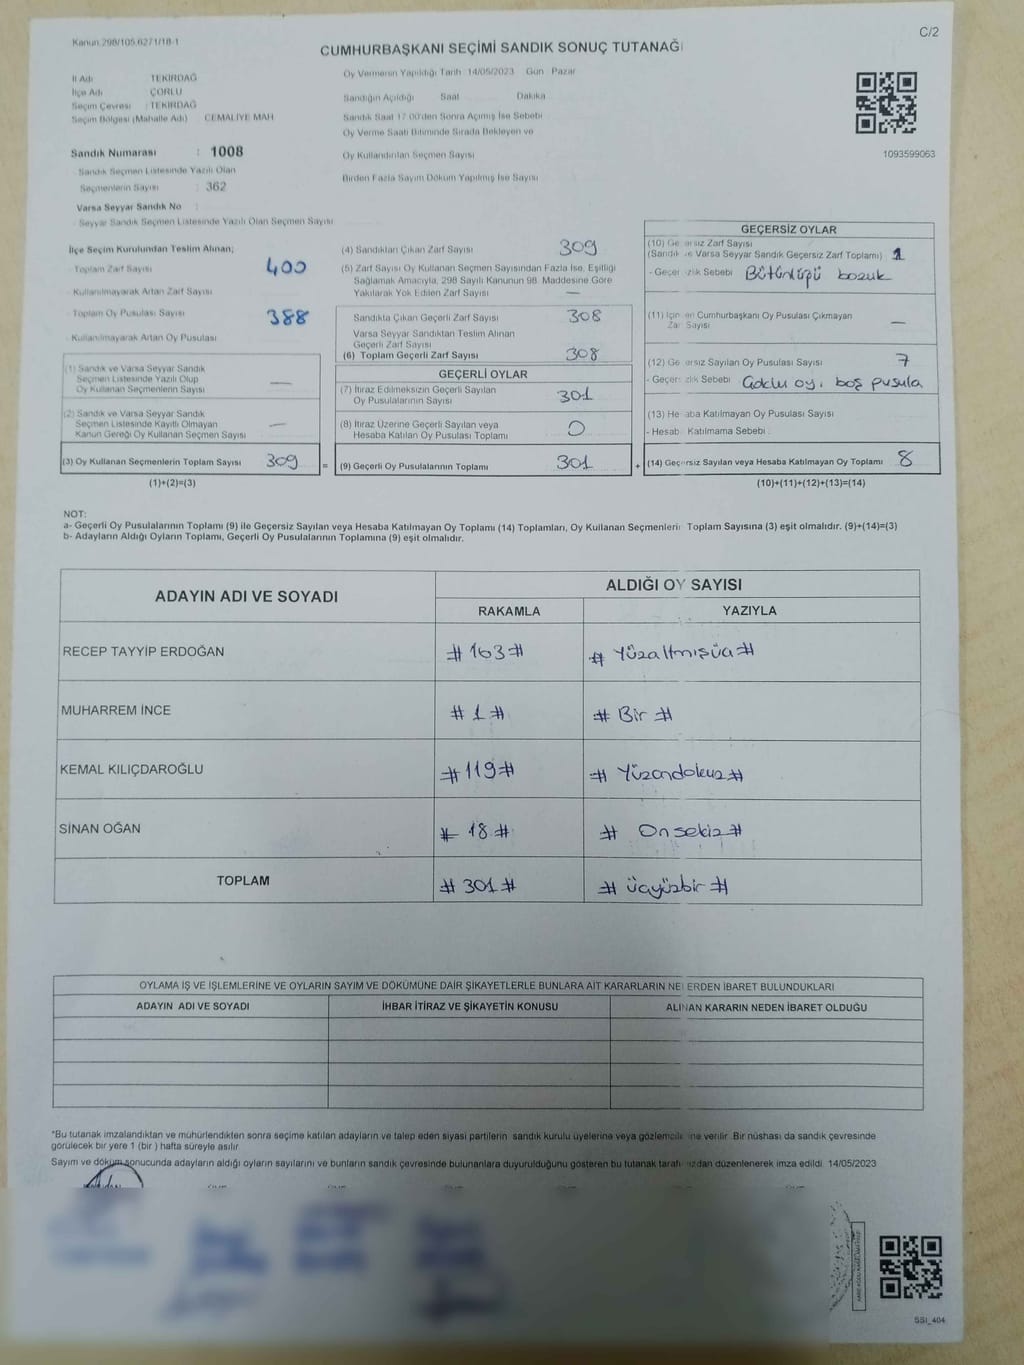 Kanun 298/105,6271/18-1
C/2
CUMHURBAŞKANI SEÇİMİ SANDIK SONUÇ TUTANAĞI
İl Adı : TEKİRDAĞ
İlçe Adı : ÇORLU
Seçim Çevresi : TEKİRDAĞ
Seçim Bölgesi (Mahalle Adı) : CEMALİYE MAH.
Sandık Numarası : 1008
Sandık Seçmen Listesinde Yazılı Olan
Seçmenlerin Sayısı : 362
Varsa Seyyar Sandık No :
Seyyar Sandık Seçmen Listesinde Yazılı Olan Seçmen Sayısı :
Oy Vermenin Yapıldığı Tarih 14/05/2023 Gün Pazar
Sandığın Açıldığı Saat Dakika
Sandık Saat 17.00'den Sonra Açılmış İse Sebebi
Oy Verme Saati Bitiminde Sırada Bekleyen ve
Oy Kullandırılan Seçmen Sayısı
Birden Fazla Sayım Döküm Yapılmış İse Sayısı
1093599063
İlçe Seçim Kurulundan Teslim Alınan;
Toplam Zarf Sayısı 400
Kullanılmayarak Artan Zarf Sayısı
Toplam Oy Pusulası Sayısı 388
Kullanılmayarak Artan Oy Pusulası
(1) Sandık ve Varsa Seyyar Sandık
Seçmen Listesinde Yazılı Olup
Oy Kullanan Seçmenlerin Sayısı —
(2) Sandık ve Varsa Seyyar Sandık
Seçmen Listesinde Kayıtlı Olmayan
Kanun Gereği Oy Kullanan Seçmen Sayısı —
(3) Oy Kullanan Seçmenlerin Toplam Sayısı 309 =
(1)+(2)=(3)
(4) Sandıktan Çıkan Zarf Sayısı 309
(5) Zarf Sayısı Oy Kullanan Seçmen Sayısından Fazla İse, Eşitliği
Sağlamak Amacıyla, 298 Sayılı Kanunun 98. Maddesine Göre
Yakılarak Yok Edilen Zarf Sayısı —
Sandıkta Çıkan Geçerli Zarf Sayısı 308
Varsa Seyyar Sandıktan Teslim Alınan
Geçerli Zarf Sayısı
(6) Toplam Geçerli Zarf Sayısı 308
GEÇERLİ OYLAR
(7) İtiraz Edilmeksizin Geçerli Sayılan
Oy Pusulalarının Sayısı 301
(8) İtiraz Üzerine Geçerli Sayılan veya
Hesaba Katılan Oy Pusulası Toplamı 0
(9) Geçerli Oy Pusulalarının Toplamı 301 +
GEÇERSİZ OYLAR
(10) Ge ersiz Zarf Sayısı
(Sandık ve Varsa Seyyar Sandık Geçersiz Zarf Toplamı) 1
- Geçer zlik Sebebi Bütünlüğü bozuk
(11) İçin en Cumhurbaşkanı Oy Pusulası Çıkmayan
Zarf Sayısı —
(12) Ge ersiz Sayılan Oy Pusulası Sayısı 7
- Geçer zlik Sebebi Çoklu oy, boş pusula
(13) He aba Katılmayan Oy Pusulası Sayısı
- Hesab Katılmama Sebebi :
(14) Geçersiz Sayılan veya Hesaba Katılmayan Oy Toplamı 8
(10)+(11)+(12)+(13)=(14)
NOT:
a- Geçerli Oy Pusulalarının Toplamı (9) ile Geçersiz Sayılan veya Hesaba Katılmayan Oy Toplamı (14) Toplamları, Oy Kullanan Seçmenleri Toplam Sayısına (3) eşit olmalıdır. (9)+(14)=(3)
b- Adayların Aldığı Oyların Toplamı, Geçerli Oy Pusulalarının Toplamına (9) eşit olmalıdır.
ADAYIN ADI VE SOYADI
ALDIĞI OY SAYISI
RAKAMLA YAZIYLA
RECEP TAYYİP ERDOĞAN #163# # Yüzaltmışüç#
MUHARREM İNCE #1# # Bir #
KEMAL KILIÇDAROĞLU #119# # Yüzondokuz#
SİNAN OĞAN # 18 # # Onsekiz #
TOPLAM # 301 # # üçyüzbir #
OYLAMA İŞ VE İŞLEMLERİNE VE OYLARIN SAYIM VE DÖKÜMÜNE DAİR ŞİKAYETLERLE BUNLARA AİT KARARLARIN NE ERDEN İBARET BULUNDUKLARI
ADAYIN ADI VE SOYADI İHBAR İTİRAZ VE ŞİKAYETİN KONUSU ALINAN KARARIN NEDEN İBARET OLDUĞU
*Bu tutanak imzalandıktan ve mühürlendikten sonra seçime katılan adayların ve talep eden siyasi partilerin sandık kurulu üyelerine veya gözlemcile ine verilir. Bir nüshası da sandık çevresinde
görülecek bir yere 1 (bir ) hafta süreyle asılır.
Sayım ve döküm sonucunda adayların aldığı oyların sayılarını ve bunların sandık çevresinde bulunanlara duyurulduğunu gösteren bu tutanak tarafı ızdan düzenlenerek imza edildi. 14/05/2023
SSI_404